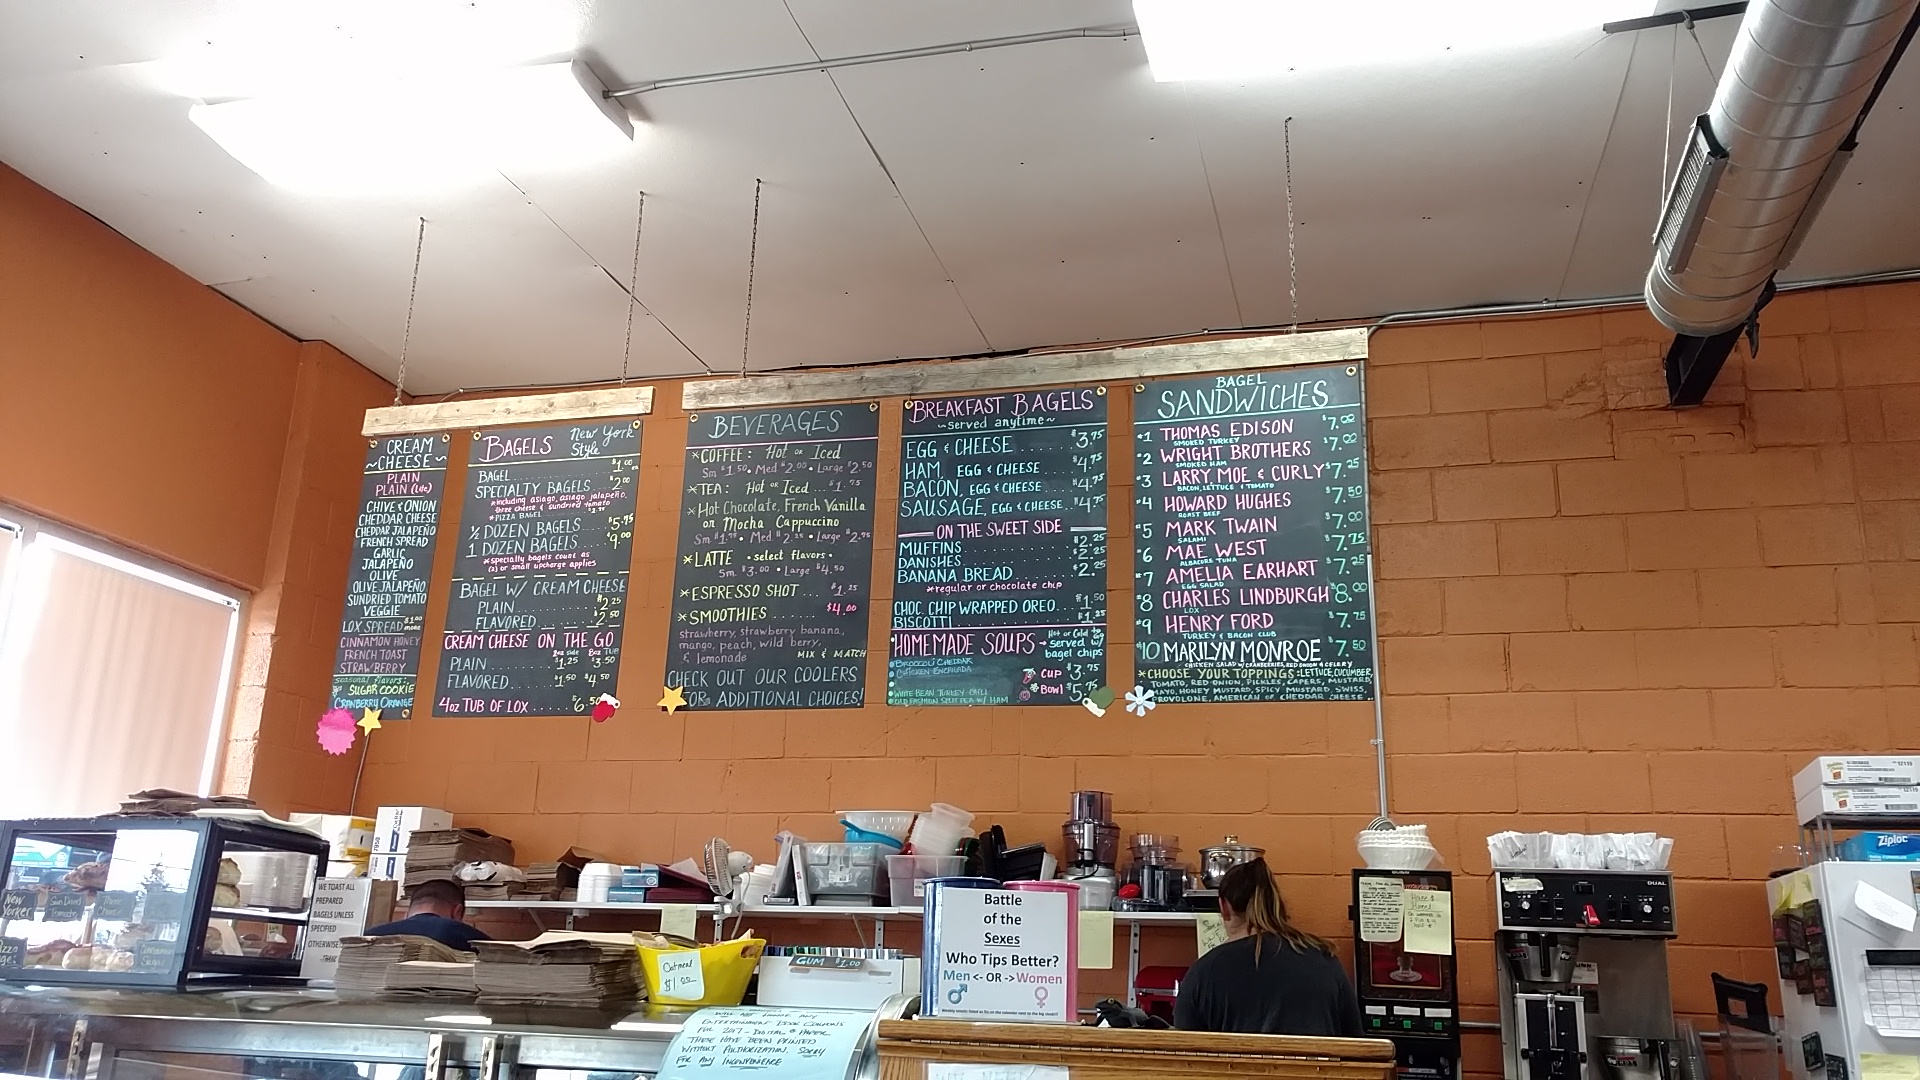 CREAM
~CHEESE~
PLAIN
PLAIN (Lite)
CHIVE & ONION
CHEDDAR CHEESE
CHEDDAR JALAPEÑO
FRENCH SPREAD
GARLIC
JALAPEÑO
OLIVE
OLIVE JALAPEÑO
SUNDRIED TOMATO
VEGGIE
LOX SPREAD $1.00 more
CINNAMON HONEY
FRENCH TOAST
STRAWBERRY
seasonal flavors:
SUGAR COOKIE
CRANBERRY ORANGE
BAGELS New York Style
BAGEL $1.00 ea
SPECIALTY BAGELS... $2.00
*including asiago, asiago jalapeño,
three cheese & sundried tomato
*PIZZA BAGEL
½ DOZEN BAGELS... $5.75
1 DOZEN BAGELS... $9.00
*specialty bagels count as
(2) or small upcharge applies
BAGEL W/ CREAM CHEESE
PLAIN $2.25
FLAVORED $2.50
CREAM CHEESE ON THE GO
2oz side 8oz TUB
PLAIN $1.25 $3.50
FLAVORED... $1.50 $4.50
4oz TUB OF LOX..... $6.50
BEVERAGES
*COFFEE: Hot or Iced
Sm $1.50 • Med $2.00 • Large $2.50
*TEA: Hot or Iced... $1.75
*Hot Chocolate, French Vanilla
or Mocha Cappuccino
Sm $1.75 • Med $2.25 • Large $2.75
*LATTE • select flavors •
Sm $3.00 • Large $4.50
*ESPRESSO SHOT... $1.25
*SMOOTHIES...... $4.00
strawberry, strawberry banana,
mango, peach, wild berry,
& lemonade MIX & MATCH
CHECK OUT OUR COOLERS
FOR ADDITIONAL CHOICES!
BREAKFAST BAGELS
~served anytime~
EGG & CHEESE $3.75
HAM, EGG & CHEESE $4.75
BACON, EGG & CHEESE $4.75
SAUSAGE, EGG & CHEESE $4.75
ON THE SWEET SIDE
MUFFINS $2.25
DANISHES $2.25
BANANA BREAD $2.25
*regular or chocolate chip
CHOC. CHIP WRAPPED OREO... $1.50
BISCOTTI $1.25
HOMEMADE SOUPS Hot or Cold to go served w/ bagel chips
BROCCOLI CHEDDAR
CHICKEN ENCHILADA
CUP $3.75
WHITE BEAN TURKEY CHILI
BOWL $5.75
OLD FASHION SPLIT PEA W/ HAM
BAGEL
SANDWICHES
#1 THOMAS EDISON $7.00
SMOKED TURKEY
#2 WRIGHT BROTHERS $7.00
SMOKED HAM
#3 LARRY, MOE & CURLY $7.25
BACON, LETTUCE & TOMATO
#4 HOWARD HUGHES $7.50
ROAST BEEF
#5 MARK TWAIN $7.00
SALAMI
#6 MAE WEST $7.75
ALBACORE TUNA
#7 AMELIA EARHART $7.25
EGG SALAD
#8 CHARLES LINDBURGH $8.00
LOX
#9 HENRY FORD $7.75
TURKEY & BACON CLUB
#10 MARILYN MONROE $7.50
CHICKEN SALAD W/ CRANBERRIES, RED ONION & CELERY
*CHOOSE YOUR TOPPINGS: LETTUCE, CUCUMBER,
TOMATO, RED ONION, PICKLES, CAPERS, MUSTARD,
MAYO, HONEY MUSTARD, SPICY MUSTARD, SWISS,
PROVOLONE, AMERICAN OR CHEDDAR CHEESE
New Yorker
Sun Dried Tomato
Three Cheese
Cinnamon Sugar
WE TOAST ALL
PREPARED
BAGELS UNLESS
SPECIFIED
OTHERWISE
Oatmeal
$1.00
GUM $1.00
Battle
of the
Sexes
Who Tips Better?
Men <- OR -> Women
WILL NOT HONOR ANY
ENTERTAINMENT BOOK COUPONS
FOR 2017 - DIGITAL & PAPER
THESE HAVE BEEN PRINTED
WITHOUT AUTHORIZATION. SORRY
FOR ANY INCONVENIENCE
BUNN
DUAL
Ziploc